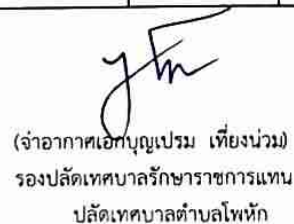 (จ่าอากาศเอกบุญเปรม เที่ยงน่วม)
รองปลัดเทศบาลรักษาราชการแทน
ปลัดเทศบาลตำบลโพหัก